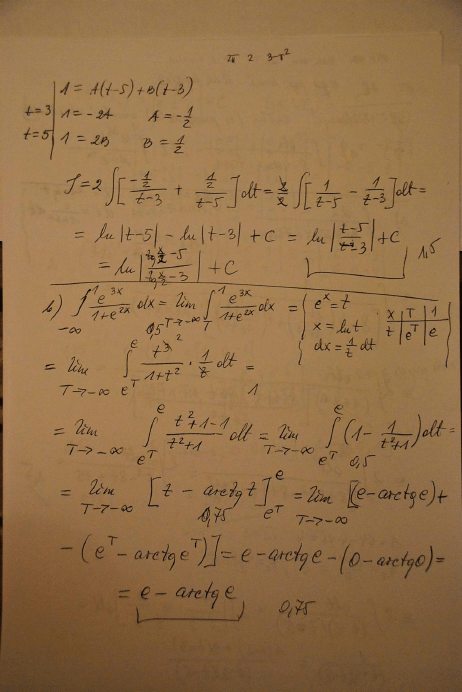 2 3-
1 = A(t-5) + B(t-3)
t=3 | 1 = -2A A = -1/2
t=5 | 1 = 2B B = 1/2
J = 2 ∫ [ (-1/2)/(t-3) + (1/2)/(t-5) ] dt = 2/2 ∫ [ 1/(t-5) - 1/(t-3) ] dt =
= ln|t-5| - ln|t-3| + C = ln| (t-5)/(t-3) | + C 1,5
= ln| -5 / -3 | + C
b) ∫_{-∞}^{1} e^{3x}/(1+e^{2x}) dx = lim_{T→-∞} ∫_{T}^{1} e^{3x}/(1+e^{2x}) dx = { e^x = t x | T | 1
0,5 x = ln t t | e^T | e
dx = 1/t dt }
= lim_{T→-∞} ∫_{e^T}^{e} t^{3 2}/(1+t^2) · 1/t dt =
1
= lim_{T→-∞} ∫_{e^T}^{e} (t^2+1-1)/(t^2+1) dt = lim_{T→-∞} ∫_{e^T}^{e} (1 - 1/(t^2+1)) dt =
0,5
= lim_{T→-∞} [ t - arctg t ]_{e^T}^{e} = lim_{T→-∞} [(e - arctg e) +
0,75
- (e^T - arctg e^T)] = e - arctg e - (0 - arctg 0) =
= e - arctg e 0,75